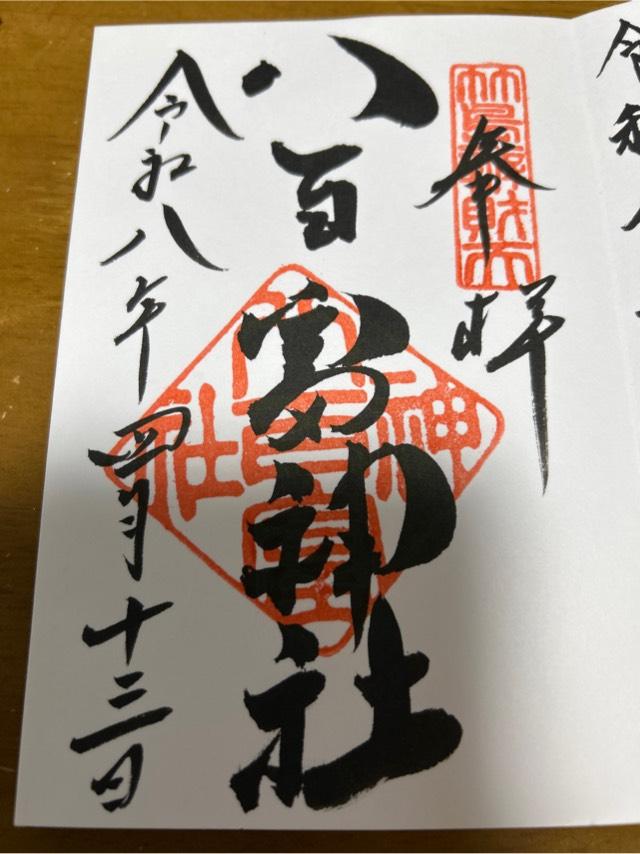 奉拝
竹島辨財天
八百富神社
八百富神社
令和八年四月十三日